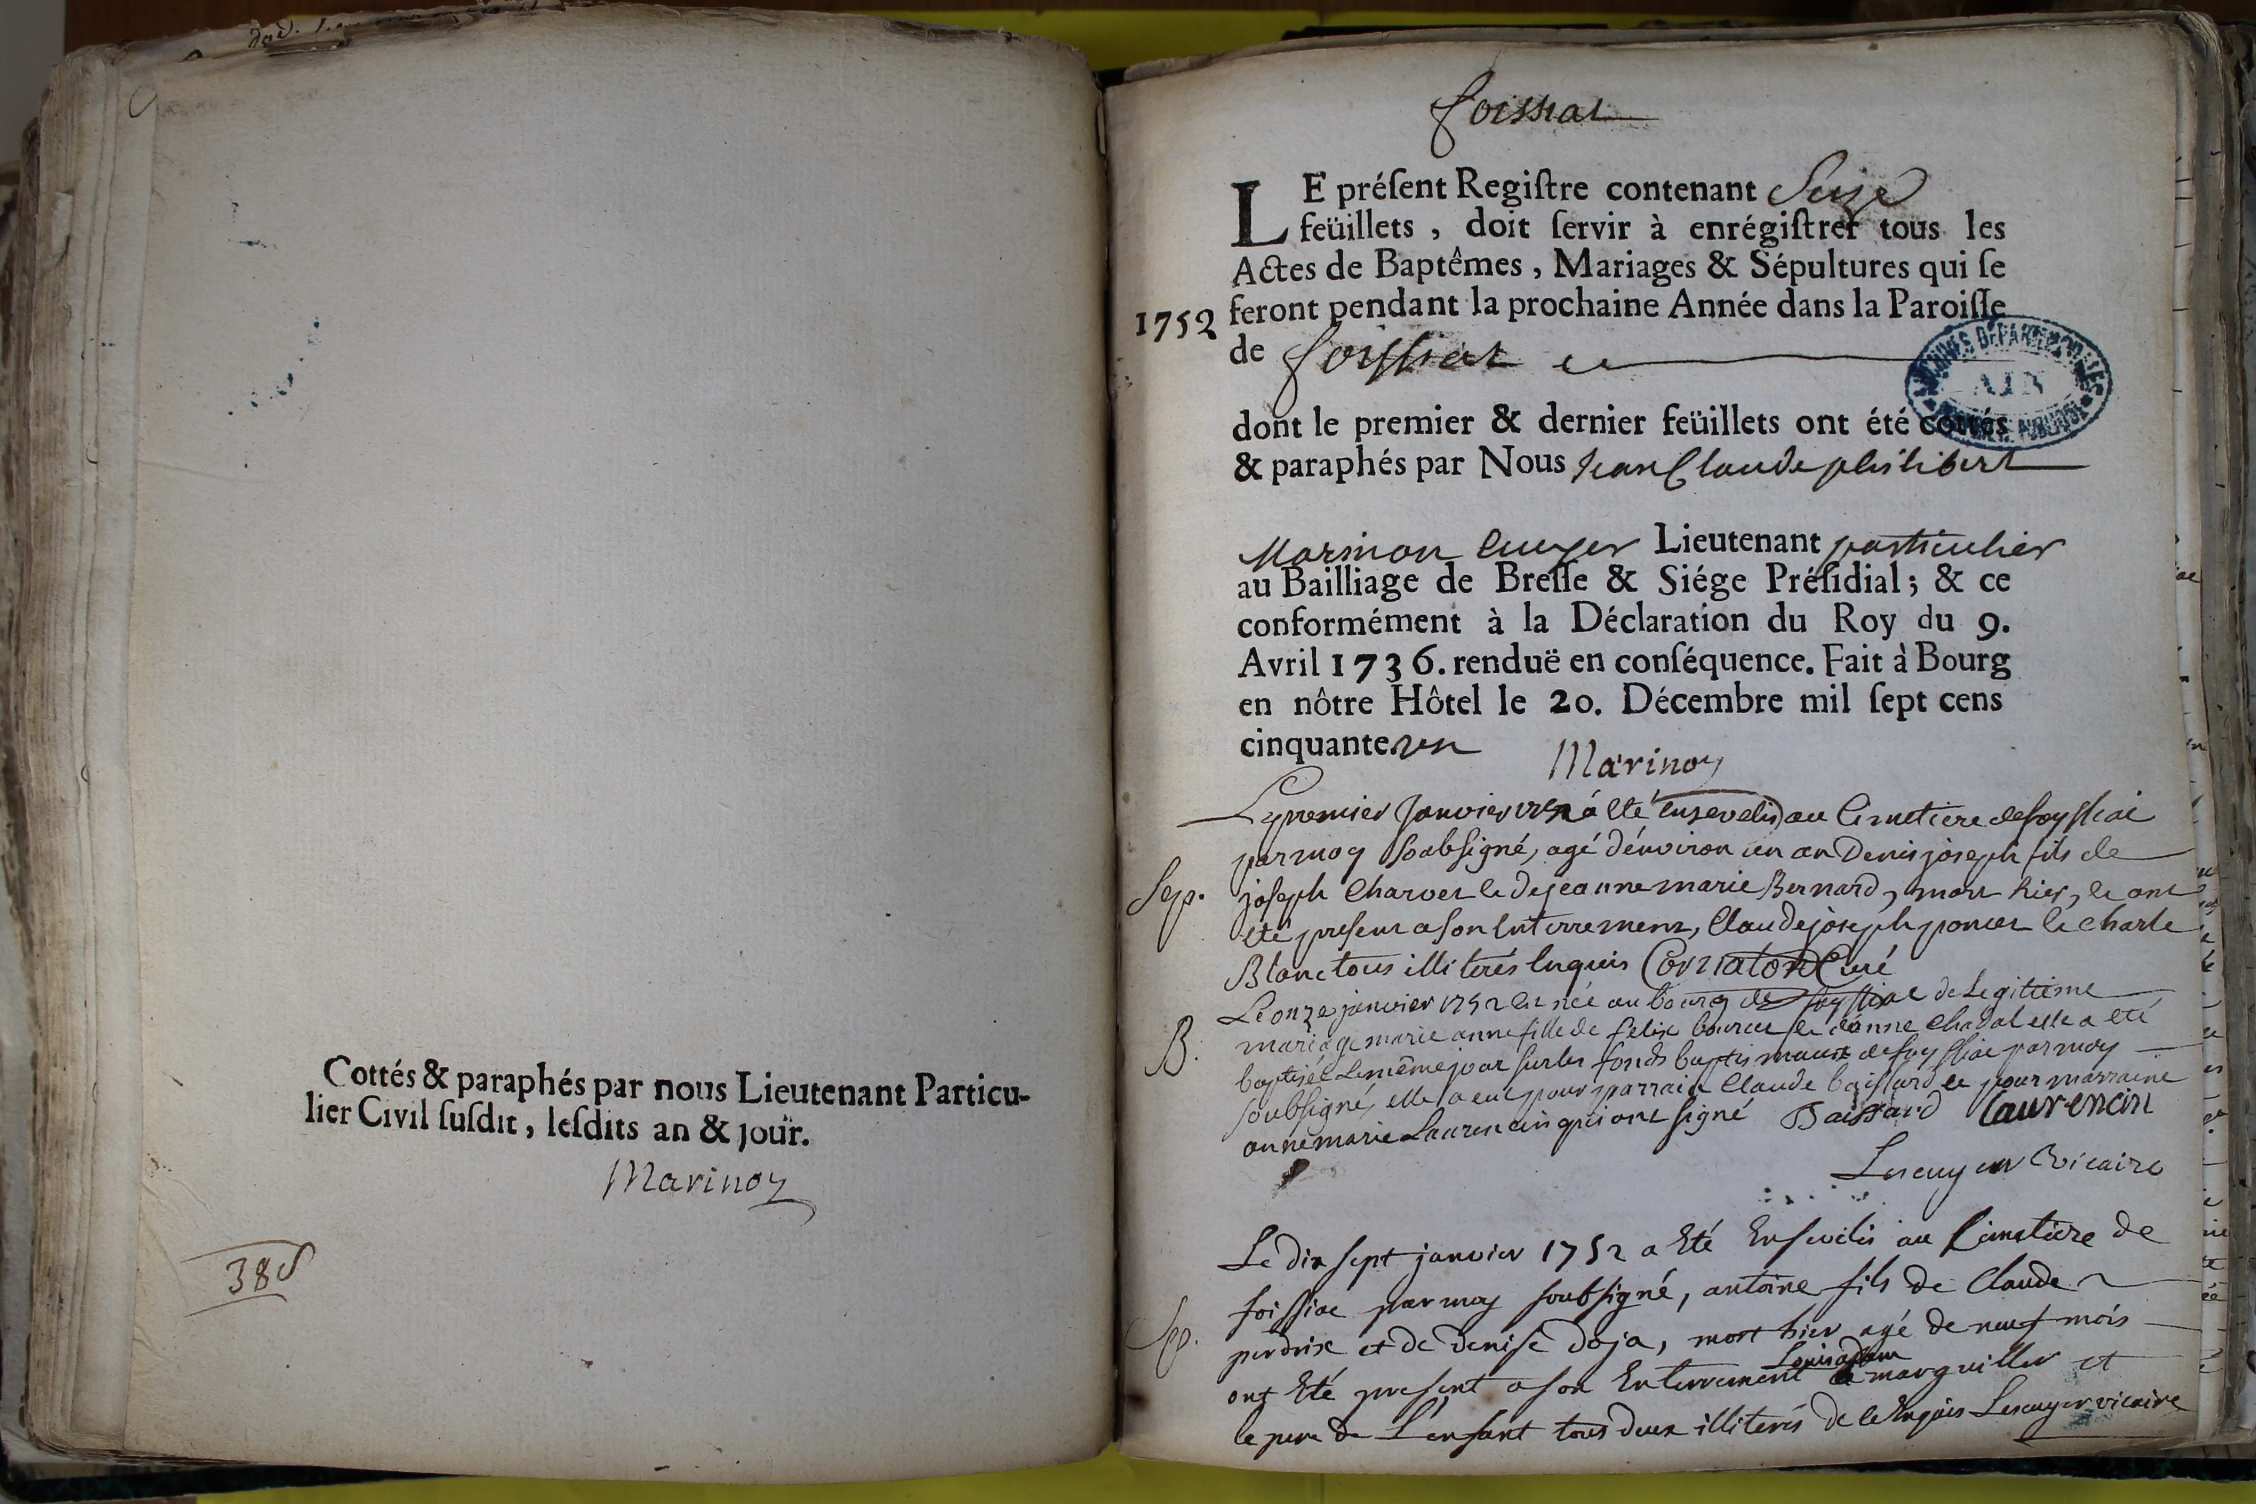 Cottés & paraphés par nous Lieutenant Particu-
lier Civil ſuſdit, leſdits an & jour.
Marinon
38
foissiat
LE préſent Regiſtre contenant Seize
feüillets, doit ſervir à enrégiſtrer tous les
Actes de Baptêmes, Mariages & Sépultures qui ſe
1752 feront pendant la prochaine Année dans la Paroiſſe
de foissiat
ARCHIVES DEPARTEMENTALES AIN
dont le premier & dernier feüillets ont été cottés
& paraphés par Nous Jean Claude philibert
Marinon Ecuyer Lieutenant particulier
au Bailliage de Breſſe & Siége Préſidial; & ce
conformément à la Déclaration du Roy du 9.
Avril 1736. renduë en conſéquence. Fait à Bourg
en nôtre Hôtel le 20. Décembre mil ſept cens
cinquante un
Marinon
Le premier Janvier 1752 á eté ensevelis au Cimetiere de foyssiat
par moy Soubsigné, agé d'énviron un an Denis joseph fils de
Sep. joseph Charvet & de jeanne marie Bernard, mort hier, & ont
eté present a son Enterrement, Claude joseph poncet & Charle
Blanc tous illiterés Enquis Cornaton Curé
Le onze janvier 1752 est née au bourg de foyssiat de Legitime
B. mariage marie anne fille de felix & anne Chadal elle a eté
baptisée Le même jour sur les fonds baptismaux de foyssiat par moy
soubsigné, elle a eut pour parrain Claude baissard et pour marraine
anne marie Laurencin qui ont signé Baissard Laurencin
Lescuyer vicaire
Le dix sept janvier 1752 a Eté Ensevelis au Cimetière de
foissiat par moy soubsigné, antoine fils de Claude
Sep. perdrix et de Denise Doja, mort hier agé de neuf mois
ont Eté present a son Enterrement Louis adam marguillier et
le pere de L'enfant tous deux illiterés de ce Enquis Lescuyer vicaire